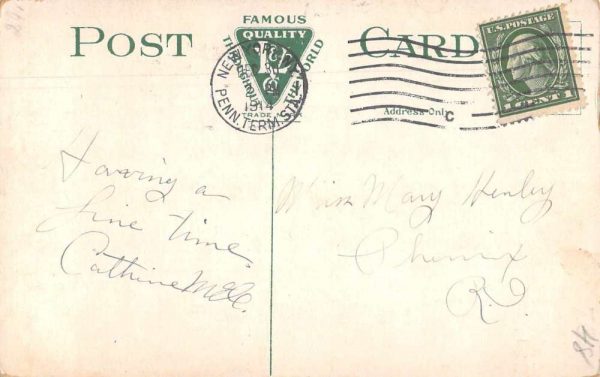 POST CARD
FAMOUS
QUALITY
THROUGHOUT THE WORLD
TRADE MARK
NEW YORK, N.Y.
1914
PENN. TERM. STA.
C
U.S. POSTAGE
1 CENT 1
Address Only
Having a
fine time.
Cathrine
Miss Mary Henley
Phenix
R.I.
48